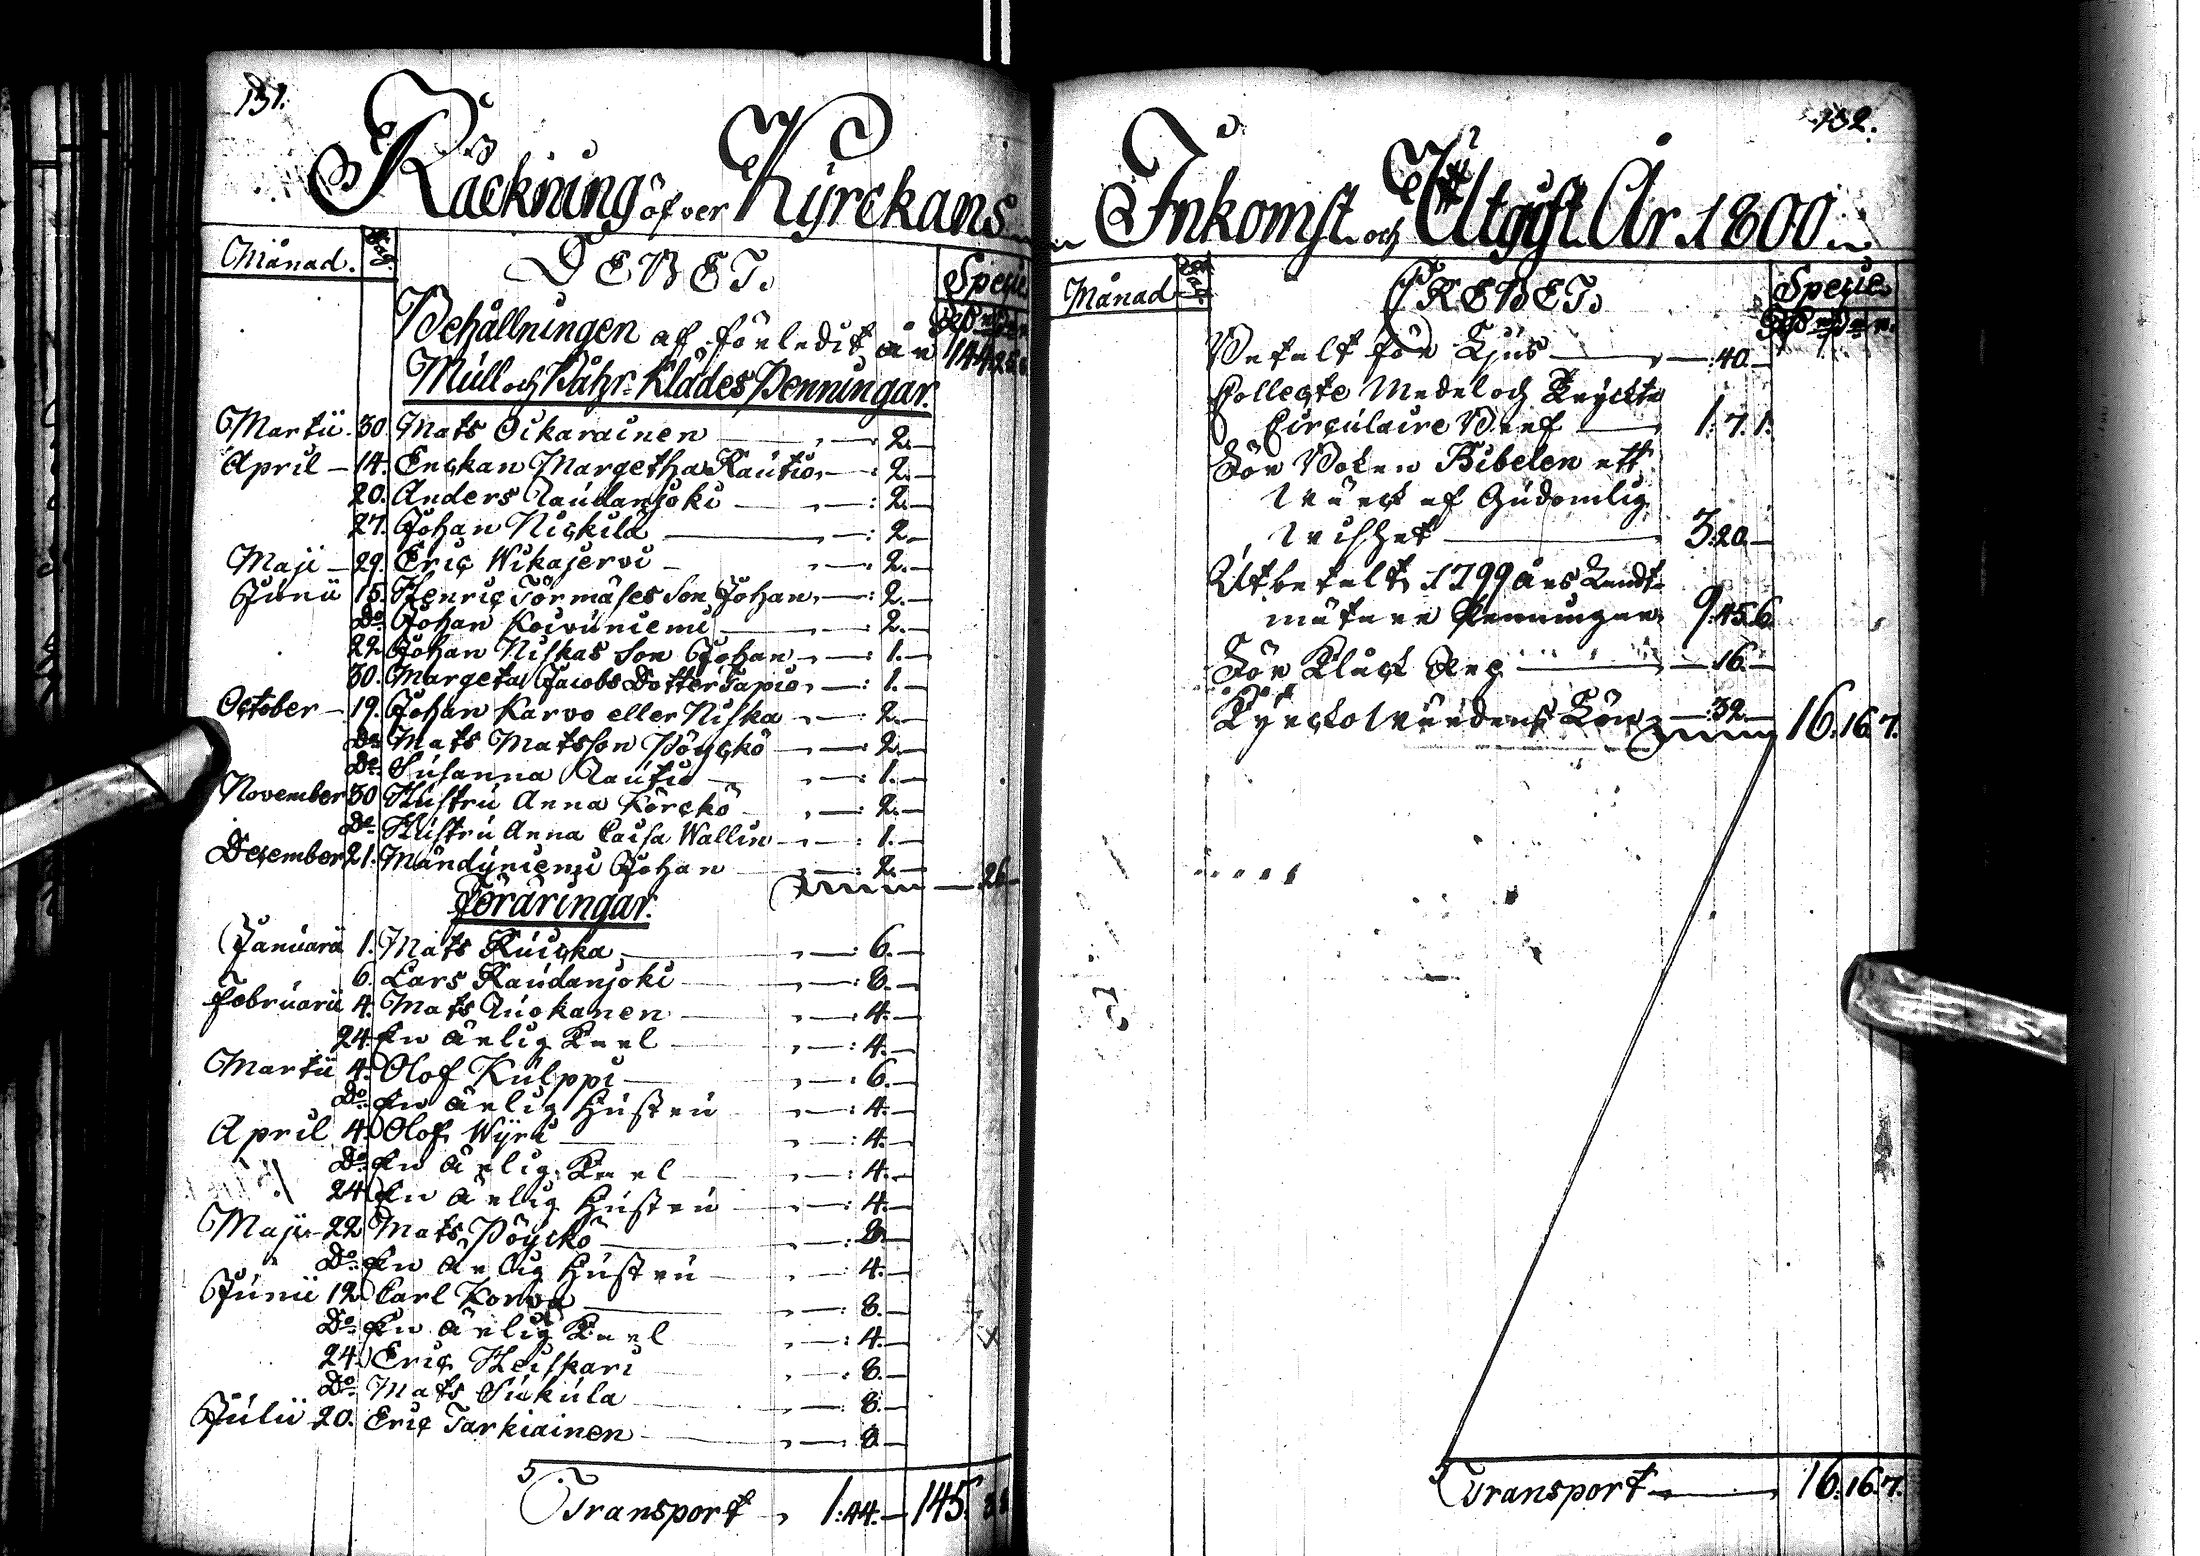 131.
Räckning öfver Kyrckans
Månad. Dag. DEBET. Specie
Behållningen af förledit år 144.25.6
Mull och Båhr-Klädes Penningar.
Martii. 30 Mats Oikarainen — 2.—
April — 14. Enckan Margetha Rautio — : 2.—
20. Anders Raudanjoki — : 2.—
27. Johan Nickilä — : 2.—
Maji — 29. Eric Wikajervi — : 2.—
Junii 15. Henric Törmäses Son Johan — : 2.—
Do. Johan Koivuniemi — : 2.—
22. Johan Niskas Son Johan — : 1.—
30. Margeta Jacobs Dotter Tapio — : 1.—
October — 19. Johan Karvo eller Niska — : 2.—
Do. Mats Matsson Pöyckö — : 2.—
Do. Susanna Rautio — : 1.—
November 30 Hustru Anna Körckö — : 2.—
Do. Hustru Anna Caisa Wallin — : 1.—
December 21. Mändyniemi Johan — : 2.— — 26 —
Föräringar.
Januarii 1. Mats Ruicka — : 6.—
6. Lars Raudanjoki — : 8.—
Februarii 4. Mats Ruokanen — : 4.—
24. En ärlig Karl — : 4.—
Martii 4. Olof Kulppi — : 6.—
Do. En ärlig Hustru — : 4.—
April 4. Olof Wyri — : 4.—
Do. En ärlig Karl — : 4.—
24. En ärlig Hustru — : 4.—
Maji 22 Mats Pöyckö — : 8.—
Do. En ärlig Hustru — : 4.—
Junii 12. Carl Korva — : 8.—
Do. En ärlig Karl — : 4.—
24. Eric Heiskari — : 8.—
Do. Mats Sukula — : 8.—
Julii 20. Eric Tarkiainen — 8 —
Transport 1:44.— 145.
132.
Inkomst och Utgift År 1800
Månad Dag. CREDET. Specie
Betalt för Ljus — : 40 —
Collecte Medel och Tryckte
Circulaire Bref — 1. 7. 1.
För Boken Bibelen ett
Wärck af Gudomlig
Wishet — 3.20.—
Utbetalt 1799 års Landt
mätare Penningar 9.45.6.
För Klåck Arg — 16.—
Kyrckowärdens Lön — : 32 — 16.16.7.
Transport — 16.16.7.